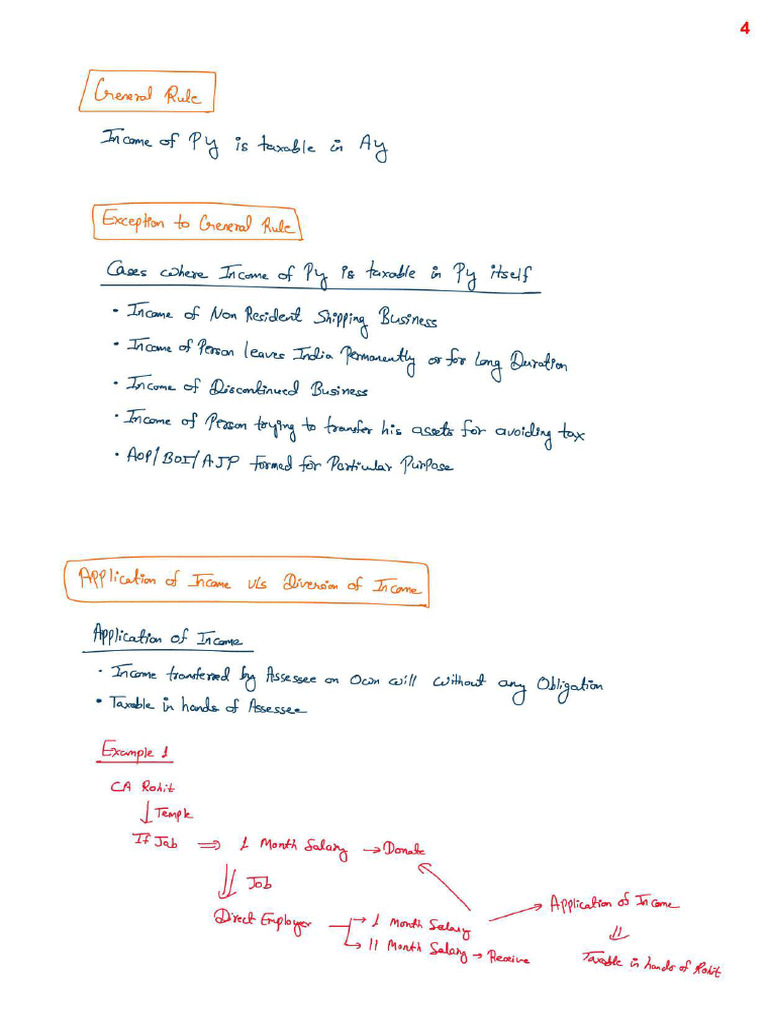 4
General Rule
Income of Py is taxable in Ay
Exception to General Rule
Cases where Income of Py is taxable in Py itself
• Income of Non Resident Shipping Business
• Income of Person leaves India Permanently or for Long Duration
• Income of Discontinued Business
• Income of Person trying to transfer his assets for avoiding tax
• AOP/BOI/AJP formed for Particular Purpose
Application of Income v/s Diversion of Income
Application of Income
• Income transferred by Assessee on Own will without any Obligation
• Taxable in hands of Assessee
Example 1
CA Rohit
↓ Temple
If Job ⇒ 1 Month Salary → Donate
⇓ Job
Direct Employer → 1 Month Salary → Application of Income
→ 11 Month Salary → Receive
⇓
Taxable in hands of Rohit